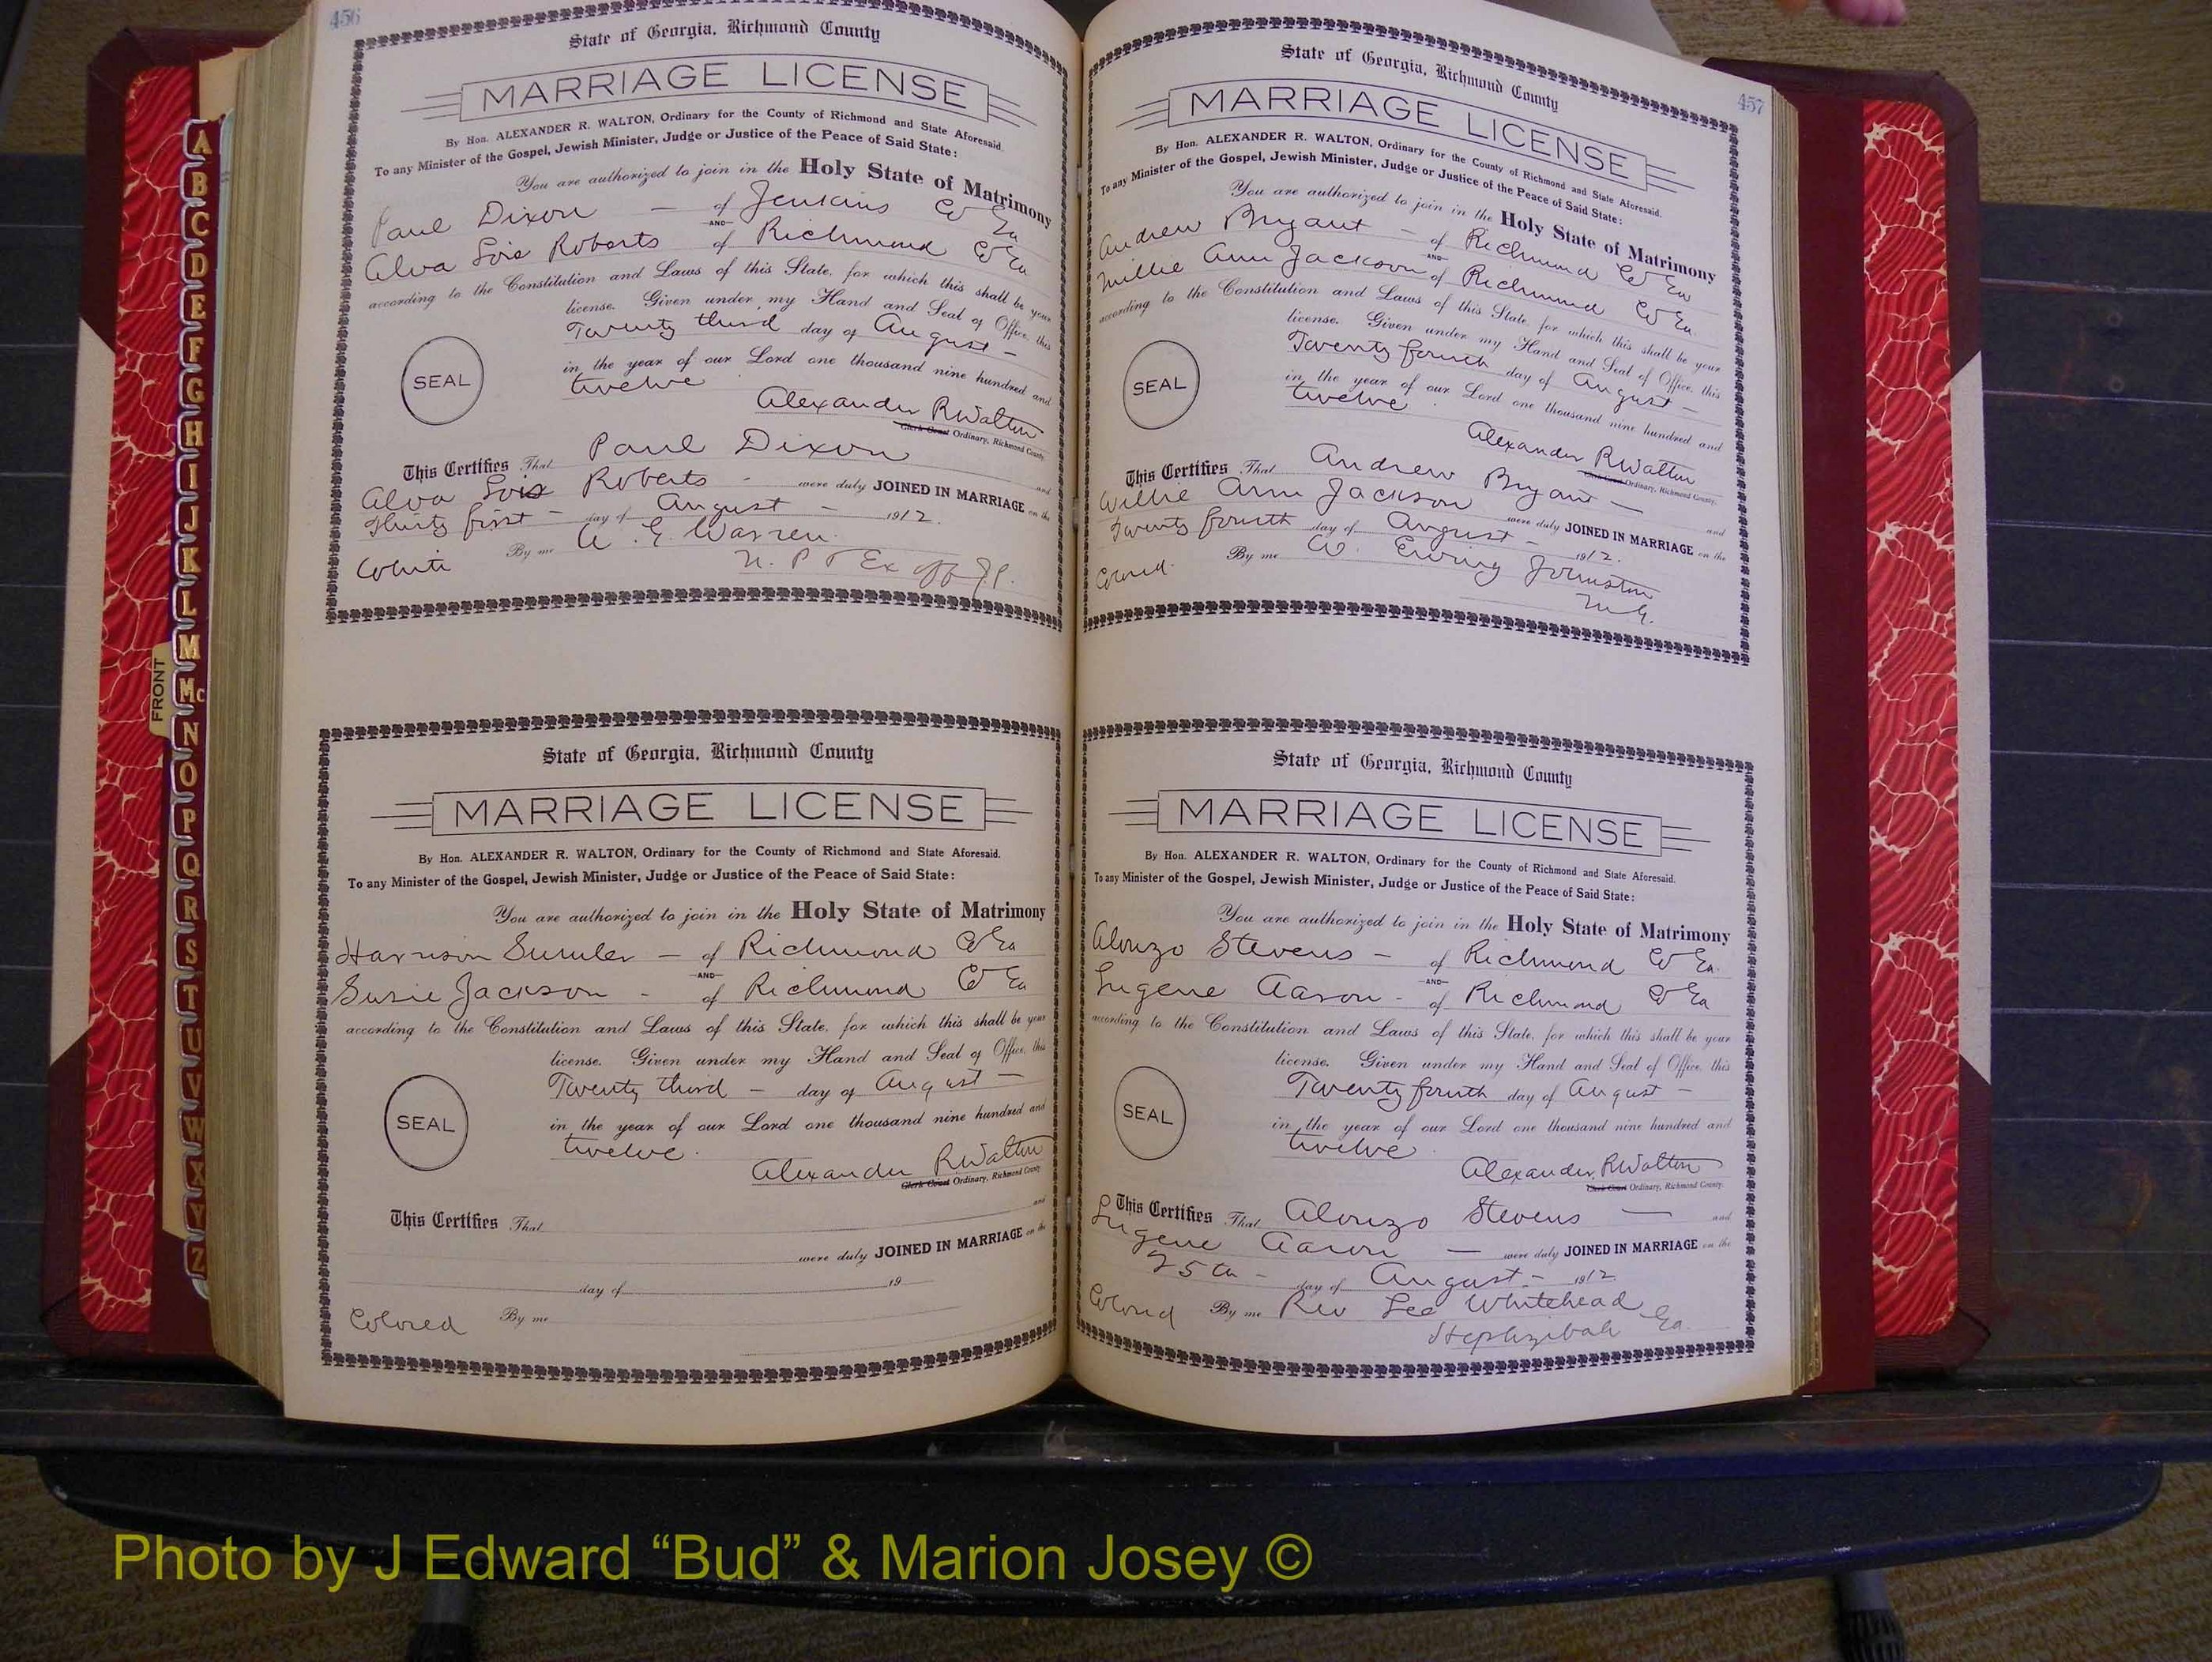 456
State of Georgia, Richmond County
MARRIAGE LICENSE
By Hon. ALEXANDER R. WALTON, Ordinary for the County of Richmond and State Aforesaid.
To any Minister of the Gospel, Jewish Minister, Judge or Justice of the Peace of Said State:
You are authorized to join in the Holy State of Matrimony
Paul Dixon — of Jenkins Co Ga
AND
Alva Lois Roberts of Richmond Co Ga
according to the Constitution and Laws of this State, for which this shall be your
license. Given under my Hand and Seal of Office, this
Twenty third day of August —
in the year of our Lord one thousand nine hundred and
twelve
SEAL
Alexander R Walton
Clerk Court Ordinary, Richmond County.
This Certifies That Paul Dixon and
Alva Lois Roberts - were duly JOINED IN MARRIAGE on the
Thirty first — day of August — 1912.
White By me W. E. Warren
N. P & Ex off J.P.
State of Georgia, Richmond County
MARRIAGE LICENSE
By Hon. ALEXANDER R. WALTON, Ordinary for the County of Richmond and State Aforesaid.
To any Minister of the Gospel, Jewish Minister, Judge or Justice of the Peace of Said State:
You are authorized to join in the Holy State of Matrimony
Harrison Sumler — of Richmond Co Ga
AND
Susie Jackson - of Richmond Co Ga
according to the Constitution and Laws of this State, for which this shall be your
license. Given under my Hand and Seal of Office, this
Twenty third — day of August —
in the year of our Lord one thousand nine hundred and
twelve.
SEAL
Alexander R Walton
Clerk Court Ordinary, Richmond County.
This Certifies That and
were duly JOINED IN MARRIAGE on the
day of 19
Colored By me
457
State of Georgia, Richmond County
MARRIAGE LICENSE
By Hon. ALEXANDER R. WALTON, Ordinary for the County of Richmond and State Aforesaid.
To any Minister of the Gospel, Jewish Minister, Judge or Justice of the Peace of Said State:
You are authorized to join in the Holy State of Matrimony
Andrew Bryant — of Richmond Co Ga
AND
Willie Ann Jackson of Richmond Co Ga.
according to the Constitution and Laws of this State, for which this shall be your
license. Given under my Hand and Seal of Office, this
Twenty fourth day of August —
in the year of our Lord one thousand nine hundred and
twelve.
SEAL
Alexander R Walton
Clerk Court Ordinary, Richmond County.
This Certifies That Andrew Bryant — and
Willie Ann Jackson were duly JOINED IN MARRIAGE on the
Twenty fourth day of August — 1912.
Colored By me W. Ewing Johnston
M.G.
State of Georgia, Richmond County
MARRIAGE LICENSE
By Hon. ALEXANDER R. WALTON, Ordinary for the County of Richmond and State Aforesaid.
To any Minister of the Gospel, Jewish Minister, Judge or Justice of the Peace of Said State:
You are authorized to join in the Holy State of Matrimony
Alonzo Stevens — of Richmond Co Ga.
AND
Lugene Aaron - of Richmond Co Ga
according to the Constitution and Laws of this State, for which this shall be your
license. Given under my Hand and Seal of Office, this
Twenty fourth day of August —
in the year of our Lord one thousand nine hundred and
twelve.
SEAL
Alexander R Walton
Clerk Court Ordinary, Richmond County.
This Certifies That Alonzo Stevens — and
Lugene Aaron — were duly JOINED IN MARRIAGE on the
25th - day of August - 1912
Colored By me Rev Lee Whitehead
Hephzibah Ga.
A
B
C
D
E
F
G
H
I
J
K
L
M
Mc
N
O
P
Q
R
S
T
U
V
W
X
Y
Z
FRONT
Photo by J Edward “Bud” & Marion Josey ©